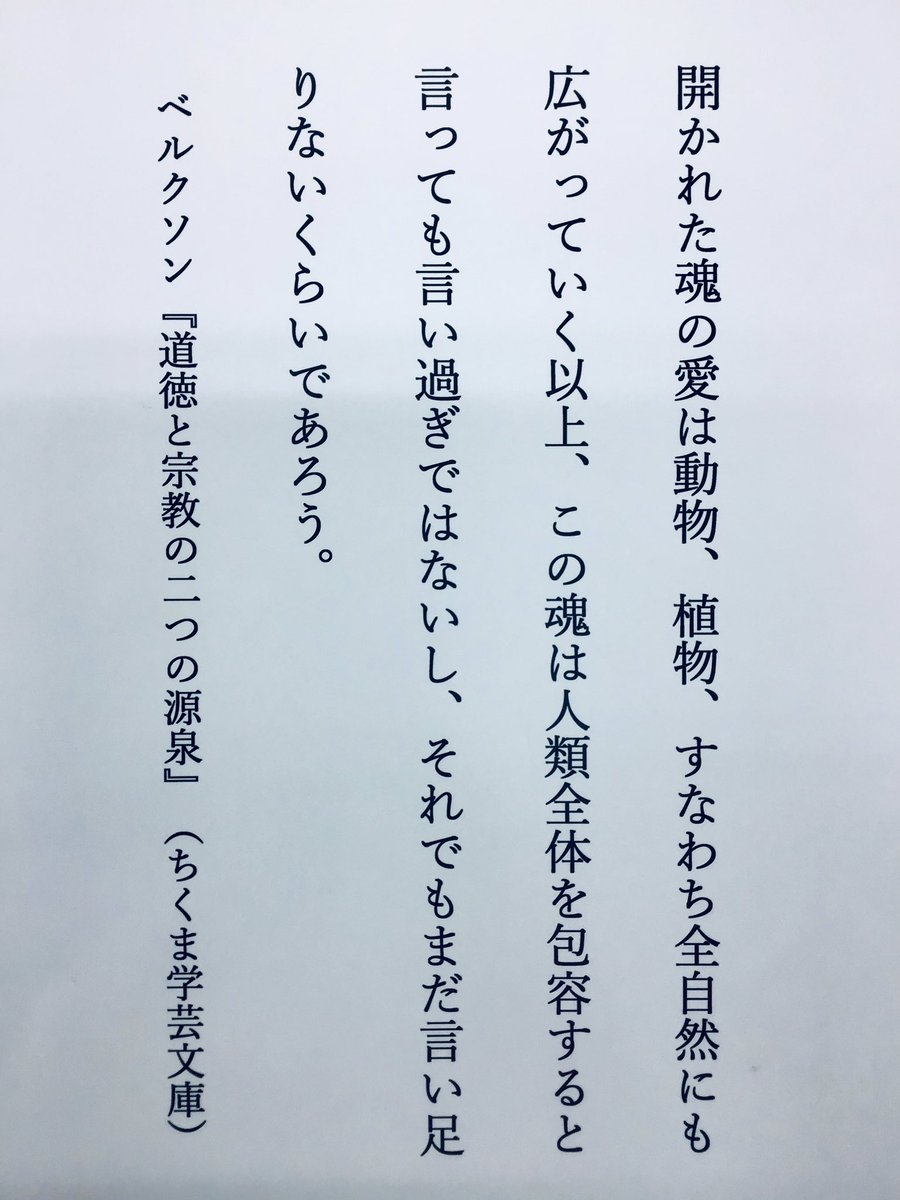 開かれた魂の愛は動物、植物、すなわち全自然にも
広がっていく以上、この魂は人類全体を包容すると
言っても言い過ぎではないし、それでもまだ言い足
りないくらいであろう。
ベルクソン『道徳と宗教の二つの源泉』（ちくま学芸文庫）